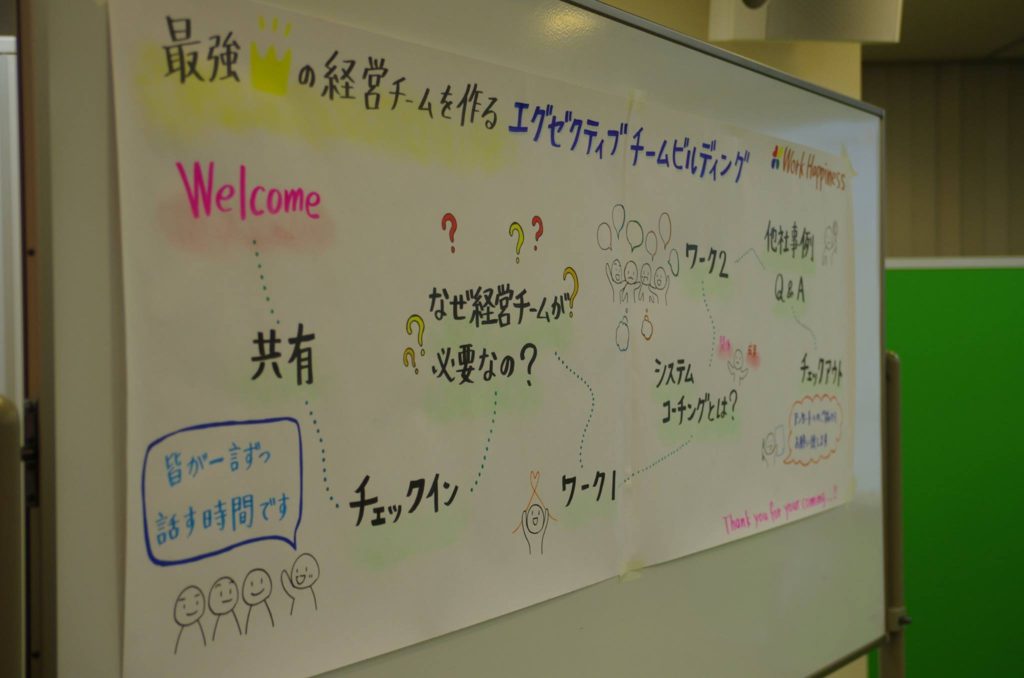 最強の経営チームを作る エグゼクティブチームビルディング
Work Happiness
Welcome
共有
皆が一言ずつ
話す時間です
チェックイン
? ? ?
なぜ経営チームが?
? ? ? 必要なの?
ワーク1
システム
コーチングとは?
ワーク2
他社事例
Q&A
チェックアウト
Thank you for your coming...!